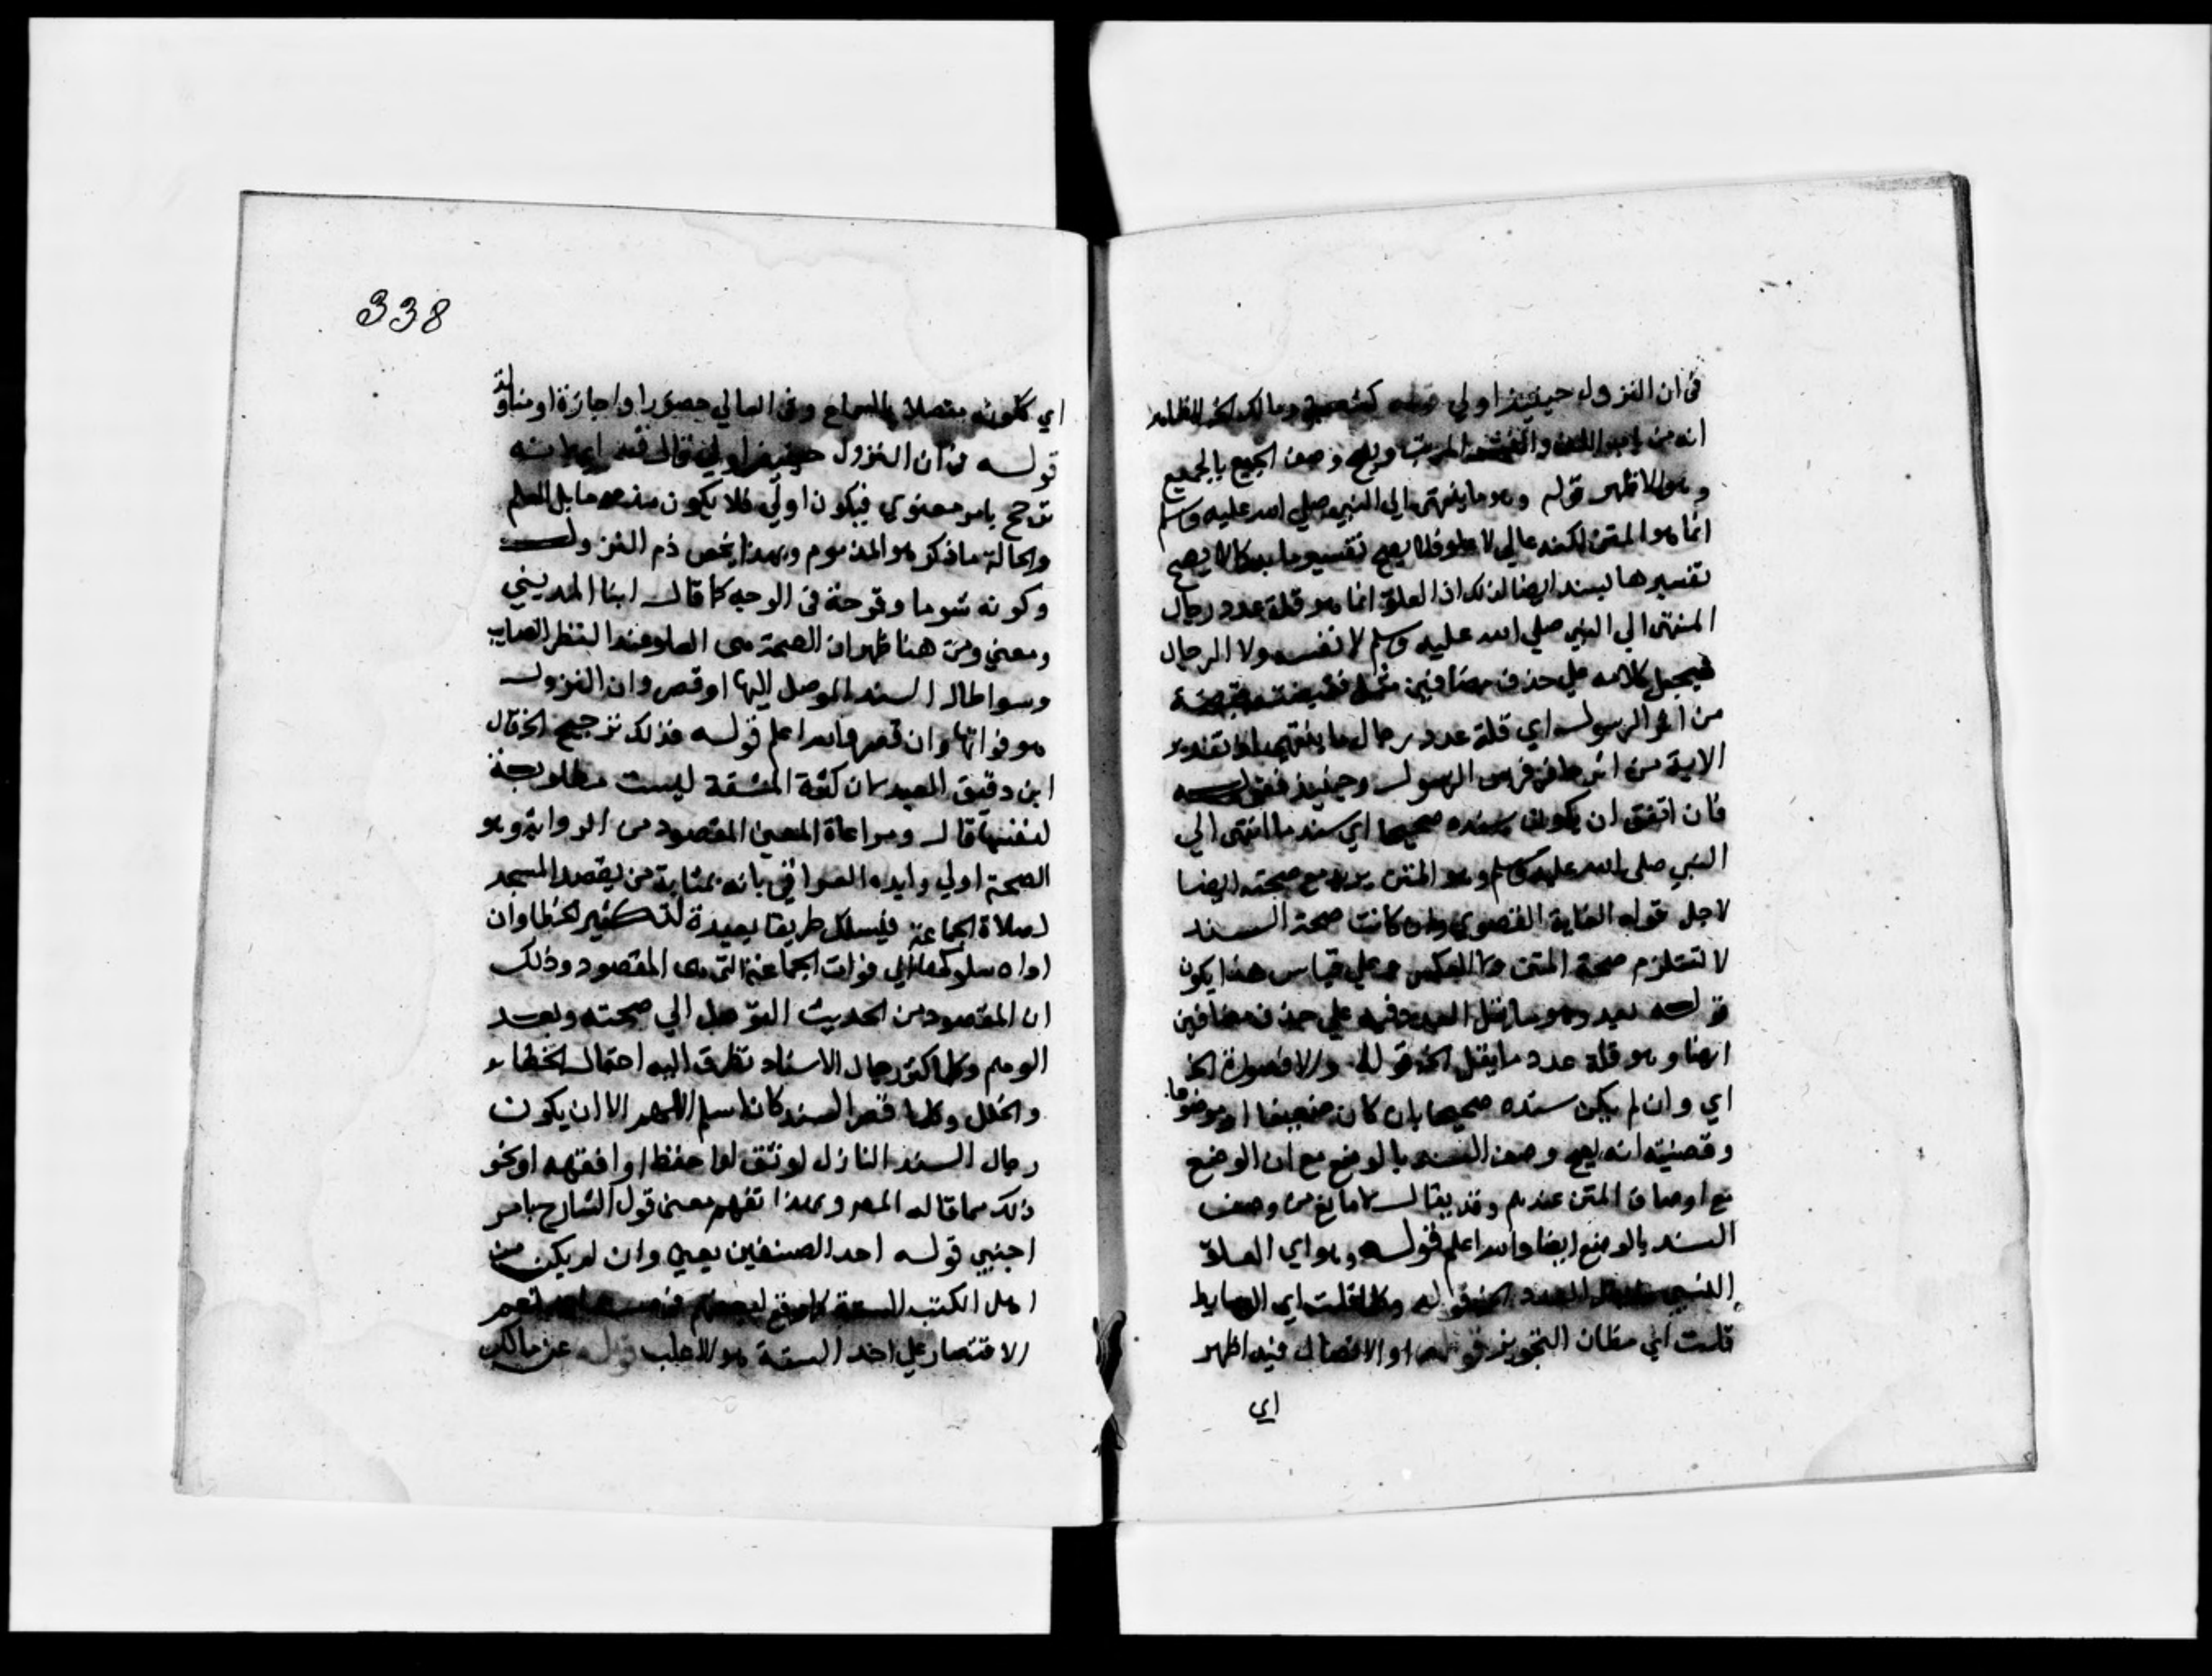 في ان النزول حينئذ اولي قوله كشعبة ومالك الخ الظاهر
انه من باب اللف والنشر المرتب ويصح وصف الجميع بالجميع
وهو الاظهر قوله وهو ما ينتهي الي النبي صلي الله عليه وسلم
انما هو المتن لكنه عالي لا علو فلا يصح تفسيرها به كما لا يصح
تفسيرها بسند ايضا لذلك اذ العلو انما هو قلة عدد رجال
المنتهي الي النبي صلي الله عليه وسلم لا نفسه ولا الرجال
فيجعل كلامه علي حذف مضافين مثل فقبضت قبضة
من اثر الرسول اي قلة عدد رجال ما ينتهي اذ تقدير
الاية من اثر حافر فرس الرسول وحينئذ فقوله
فان اتفق ان يكون سنده صحيحا اي سند ما انتهي الي
النبي صلي الله عليه وسلم وهو المتن يريد مع صحته ايضا
لاجل قوله الغاية القصوي وان كانت صحة السند
لا تستلزم صحة المتن ولا بالعكس وعلي قياس هذا يكون
قوله بعيد وهو ما يقل العدد فيه علي حذف مضافين
ايضا وهو قلة عدد ما يقل الخ قوله والا فصورة الخ
اي وان لم يكن سنده صحيحا بان كان ضعيفا او موضوعا
وقضيته انه يصح وصف السند بالوضع مع ان الوضع
من اوصاف المتن عندهم وقد يقال لا مانع من وصف
السند بالوضع ايضا والله اعلم قوله وهو اي العلو
النسبي العدد الخ قوله وكلما قلت اي الوسايط
قلت اي مظان التجويز قوله او الاتصال فيه اظهر
اي
338
اي كلونه متصلا بالسماع وفي العالي حضورا او اجازة او مناولة
قوله في ان النزول حينئذ اولي قال فيه اي لانه
ترجح بامر معنوي فيكون اولي فلا يكون مذموما بل العلو
والحالة ما ذكر هو المذموم وبهذا يخص ذم النزول
وكونه شوما وقرحة في الوجه كما قال ابنا المديني
ومعين ومن هنا ظهر ان الصحة هي العلو عند النظر الصايب
وسوا طال السند الموصل اليها او قصر وان النزول
هو فواتها وان قصر والله اعلم قوله فذلك ترجيح الخ قال
ابن دقيق العيد لان كثرة المشقة ليست مطلوبة
لنفسها قال ومراعاة المعني المقصود من الرواية وهو
الصحة اولي وايده العراقي بانه بمثابة من يقصد المسجد
لصلاة الجماعة فيسلك طريقا بعيدة لتكثير الخطا وان
اداه سلوكها الي فوات الجماعة التي هي المقصود وذلك
ان المقصود من الحديث التوصل الي صحته وبعد
الوهم وكلما كثر رجال الاسناد تطرق اليه احتمال الخطا
والخلل وكلما قصر السند كان اسلم اللهم الا ان يكون
رجال السند النازل اوثق او احفظ او افقه او نحو
ذلك مما قاله المص وبهذا تفهم معني قول الشارح بامر
اجنبي قوله احد المصنفين يعني وان لم يكن من
اهل الكتب الستة كما وقع لبعضهم نعم
الاقتصار علي احد الستة هو الاغلب قوله عن مالك